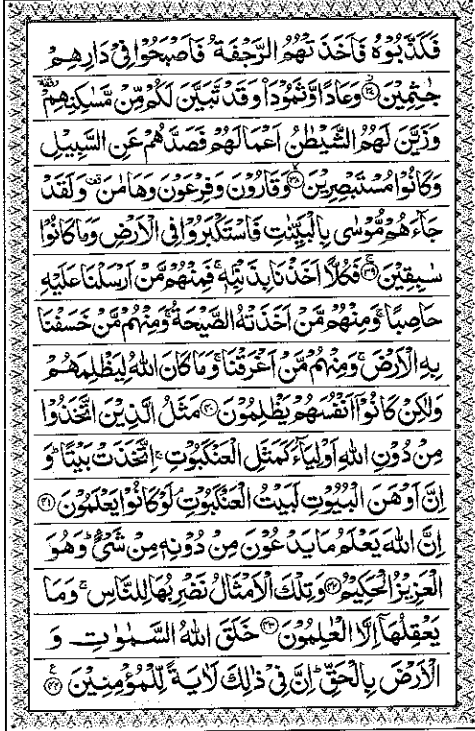 فَكَذَّبُوْهُ فَاَخَذَتْهُمُ الرَّجْفَةُ فَاَصْبَحُوْا فِيْ دَارِهِمْ
جٰثِمِيْنَ ۝۳۷ وَعَادًا وَّثَمُوْدَاۡ وَقَدْ تَّبَيَّنَ لَكُمْ مِّنْ مَّسٰكِنِهِمْ
وَزَيَّنَ لَهُمُ الشَّيْطٰنُ اَعْمَالَهُمْ فَصَدَّهُمْ عَنِ السَّبِيْلِ
وَكَانُوْا مُسْتَبْصِرِيْنَ ۝۳۸ وَقَارُوْنَ وَفِرْعَوْنَ وَهَامٰنَ وَلَقَدْ
جَآءَهُمْ مُّوْسٰى بِالْبَيِّنٰتِ فَاسْتَكْبَرُوْا فِي الْاَرْضِ وَمَا كَانُوْا
سٰبِقِيْنَ ۝۳۹ فَكُلًّا اَخَذْنَا بِذَنْۢبِهٖ فَمِنْهُمْ مَّنْ اَرْسَلْنَا عَلَيْهِ
حَاصِبًا وَمِنْهُمْ مَّنْ اَخَذَتْهُ الصَّيْحَةُ وَمِنْهُمْ مَّنْ خَسَفْنَا
بِهِ الْاَرْضَ وَمِنْهُمْ مَّنْ اَغْرَقْنَا وَمَا كَانَ اللّٰهُ لِيَظْلِمَهُمْ
وَلٰكِنْ كَانُوْۤا اَنْفُسَهُمْ يَظْلِمُوْنَ ۝۴۰ مَثَلُ الَّذِيْنَ اتَّخَذُوْا
مِنْ دُوْنِ اللّٰهِ اَوْلِيَآءَ كَمَثَلِ الْعَنْكَبُوْتِ اِتَّخَذَتْ بَيْتًا وَ
اِنَّ اَوْهَنَ الْبُيُوْتِ لَبَيْتُ الْعَنْكَبُوْتِ لَوْ كَانُوْا يَعْلَمُوْنَ ۝۴۱
اِنَّ اللّٰهَ يَعْلَمُ مَا يَدْعُوْنَ مِنْ دُوْنِهٖ مِنْ شَيْءٍ وَهُوَ
الْعَزِيْزُ الْحَكِيْمُ ۝۴۲ وَتِلْكَ الْاَمْثَالُ نَضْرِبُهَا لِلنَّاسِ وَمَا
يَعْقِلُهَاۤ اِلَّا الْعٰلِمُوْنَ ۝۴۳ خَلَقَ اللّٰهُ السَّمٰوٰتِ وَ
الْاَرْضَ بِالْحَقِّ اِنَّ فِيْ ذٰلِكَ لَاٰيَةً لِّلْمُؤْمِنِيْنَ ۝۴۴